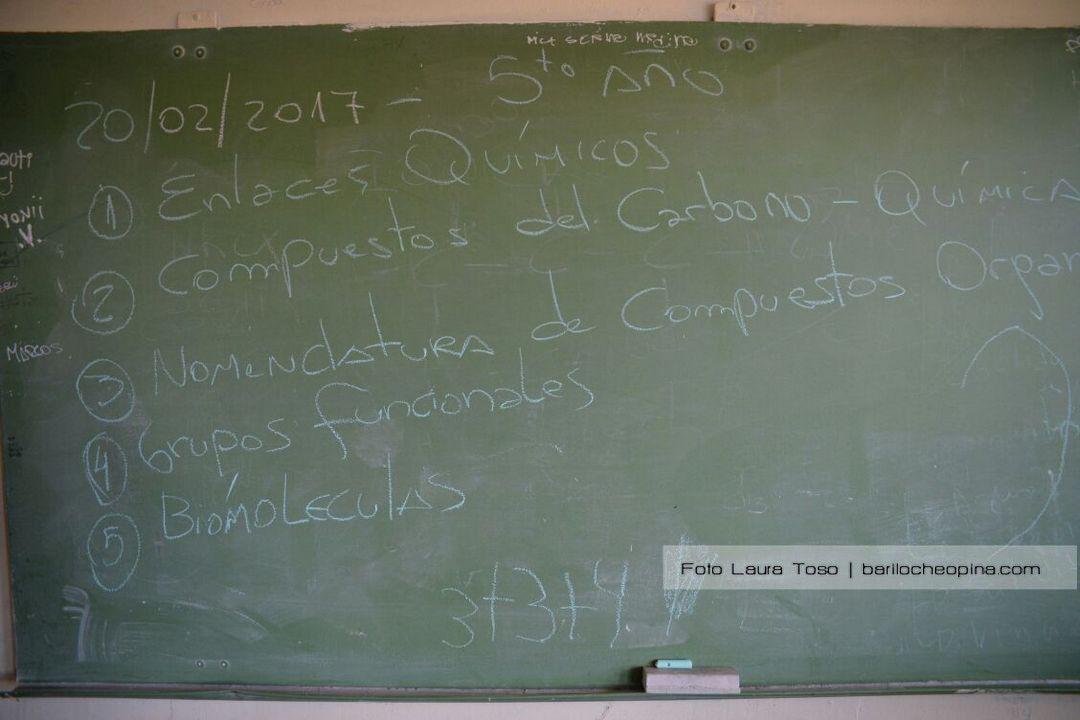 20/02/2017 - 5to AÑO
1 Enlaces Químicos
2 Compuestos del Carbono - QuímicA
3 NomenclAtuRA de Compuestos Orgán
4 Grupos funcionales
5 BiómoLéculAs
3+3+4
Foto Laura Toso | barilocheopina.com